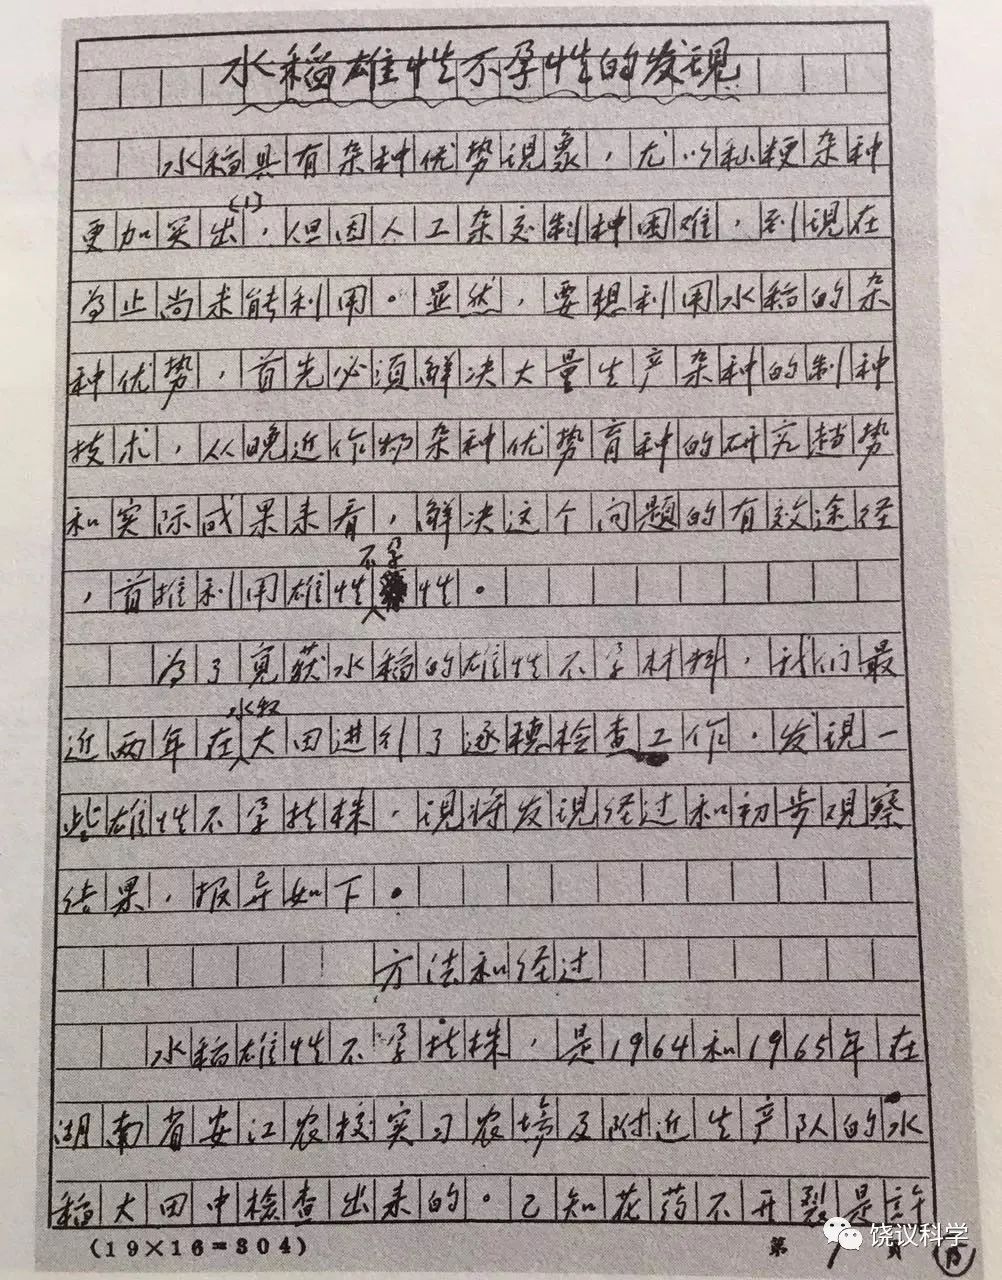 水稻雄性不孕性的发现
水稻具有杂种优势现象，尤以籼粳杂种
更加突出(1)，但因人工杂交制种困难，到现在
为止尚未能利用。显然，要想利用水稻的杂
种优势，首先必须解决大量生产杂种的制种
技术，从晚近作物杂种优势育种的研究趋势
和实际成果来看，解决这个问题的有效途径
，首推利用雄性不孕性。
为了寻获水稻的雄性不孕材料，我们最
近两年在水稻大田进行了逐穗检查工作，发现一
些雄性不孕植株，现将发现经过和初步观察
结果，报导如下。
方法和经过
水稻雄性不孕植株，是1964和1965年在
湖南省安江农校实习农场及附近生产队的水
稻大田中检查出来的。已知花药不开裂是许
(19×16=304)
第1页
饶议科学